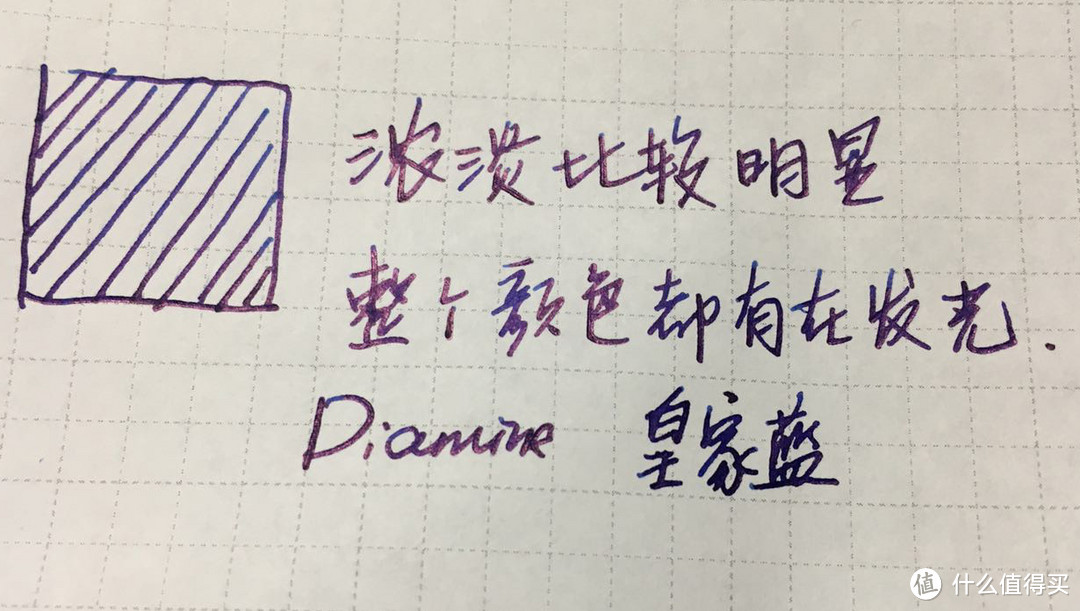 浓淡比较明显
整个颜色都有在发光.
Diamine 皇家蓝
值 什么值得买